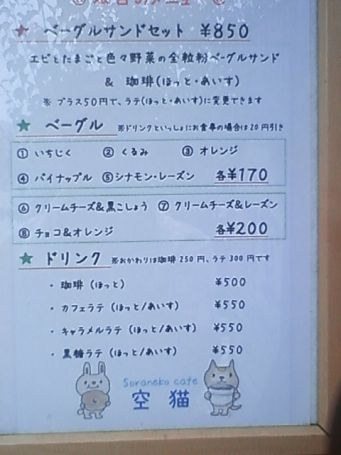 ★ ベーグルサンドセット ¥850
エビとたまごと色々野菜の全粒粉ベーグルサンド
& 珈琲(ほっと・あいす)
※ プラス50円で、ラテ(ほっと・あいす)に変更できます
★ ベーグル ※ドリンクといっしょにお食事の場合は20円引き
① いちじく ② くるみ ③ オレンジ
④ パイナップル ⑤ シナモン・レーズン 各¥170
⑥ クリームチーズ&黒こしょう ⑦ クリームチーズ&レーズン
⑧ チョコ&オレンジ 各¥200
★ ドリンク ※おかわりは珈琲250円、ラテ300円です
・ 珈琲 (ほっと) ¥500
・ カフェラテ (ほっと/あいす) ¥550
・ キャラメルラテ (ほっと/あいす) ¥550
・ 黒糖ラテ (ほっと/あいす) ¥550
Soraneko cafe
空猫